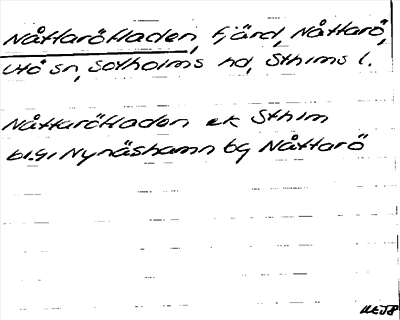 Nåttaröfladen, fjärd, Nåttarö,
Utö sn, Sotholms hd, Sthlms l.
Nåttaröfladen ek Sthlm
bl.gi Nynäshamn bg Nåttarö